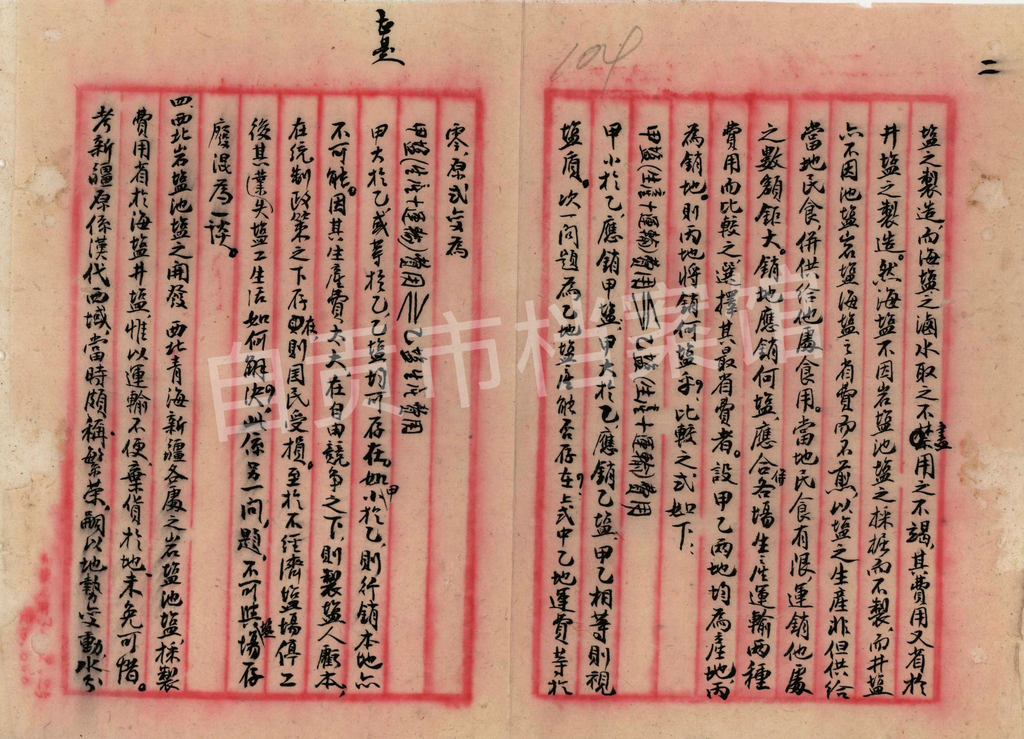 二
104
盐之製造，而海盐之滷水取之不禁用之不竭，其費用又省於
盡
井盐之製造。然海盐不因岩盐池盐之採掘而不製，而井盐
亦不因池盐岩盐海盐之省費而不煎，以盐之生產非但供給
當地民食，併供給他處食用。當地民食有限，運銷他處
之數額鉅大。銷地應銷何盐，應合各場生產運輸兩種
費用而比較之，選擇其最省費者。設甲乙兩地均為產地，丙
為銷地。則丙地將銷何盐乎？比較之式如下：
甲盐（生產十運輸）費用＝乙盐（生產十運輸）費用
甲小於乙，應銷甲盐，甲大於乙，應銷乙盐，甲乙相等則視
盐质。次一問題為乙地盐產能否存在？上式中乙地運費等於
零，原式变為
甲盐（生產十運輸）費用＝乙盐生產費用
甲大於乙或等於乙，乙盐均可存在，如甲小於乙，則行銷本地亦
不可能。因其生產費太大，在自由競争之下，則製盐人虧本，
在統制政策之下存在，則国民受損。至於不經濟盐場停工
後，其（業失）盐工生活如何解决？此係另一問題，不可與場存
廢混為一談。
四、西北岩盐池盐之開發 西北青海新疆各處之岩盐池盐，採製
費用省於海盐井盐，惟以運輸不便，棄貨於地，未免可惜。
考新疆原係漢代西域，當時頗稱繁荣，嗣以地勢变動，水分
自贡市档案馆